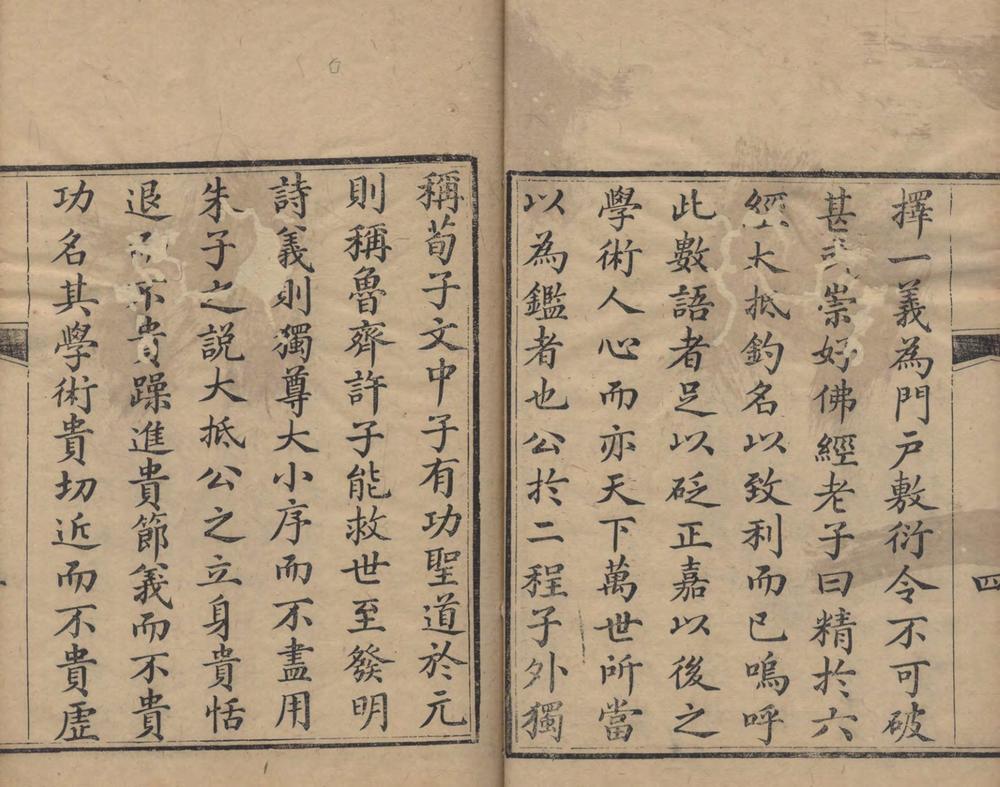 擇一義為門戶敷衍令不可破
甚崇好佛經老子曰精於六
經大抵釣名以致利而已嗚呼
此數語者足以砭正嘉以後之
學術人心而亦天下萬世所當
以為鑑者也公於二程子外獨
四
稱荀子文中子有功聖道於元
則稱魯齊許子能救世至發明
詩義則獨尊大小序而不盡用
朱子之說大抵公之立身貴恬
退而不貴躁進貴節義而不貴
功名其學術貴切近而不貴虛